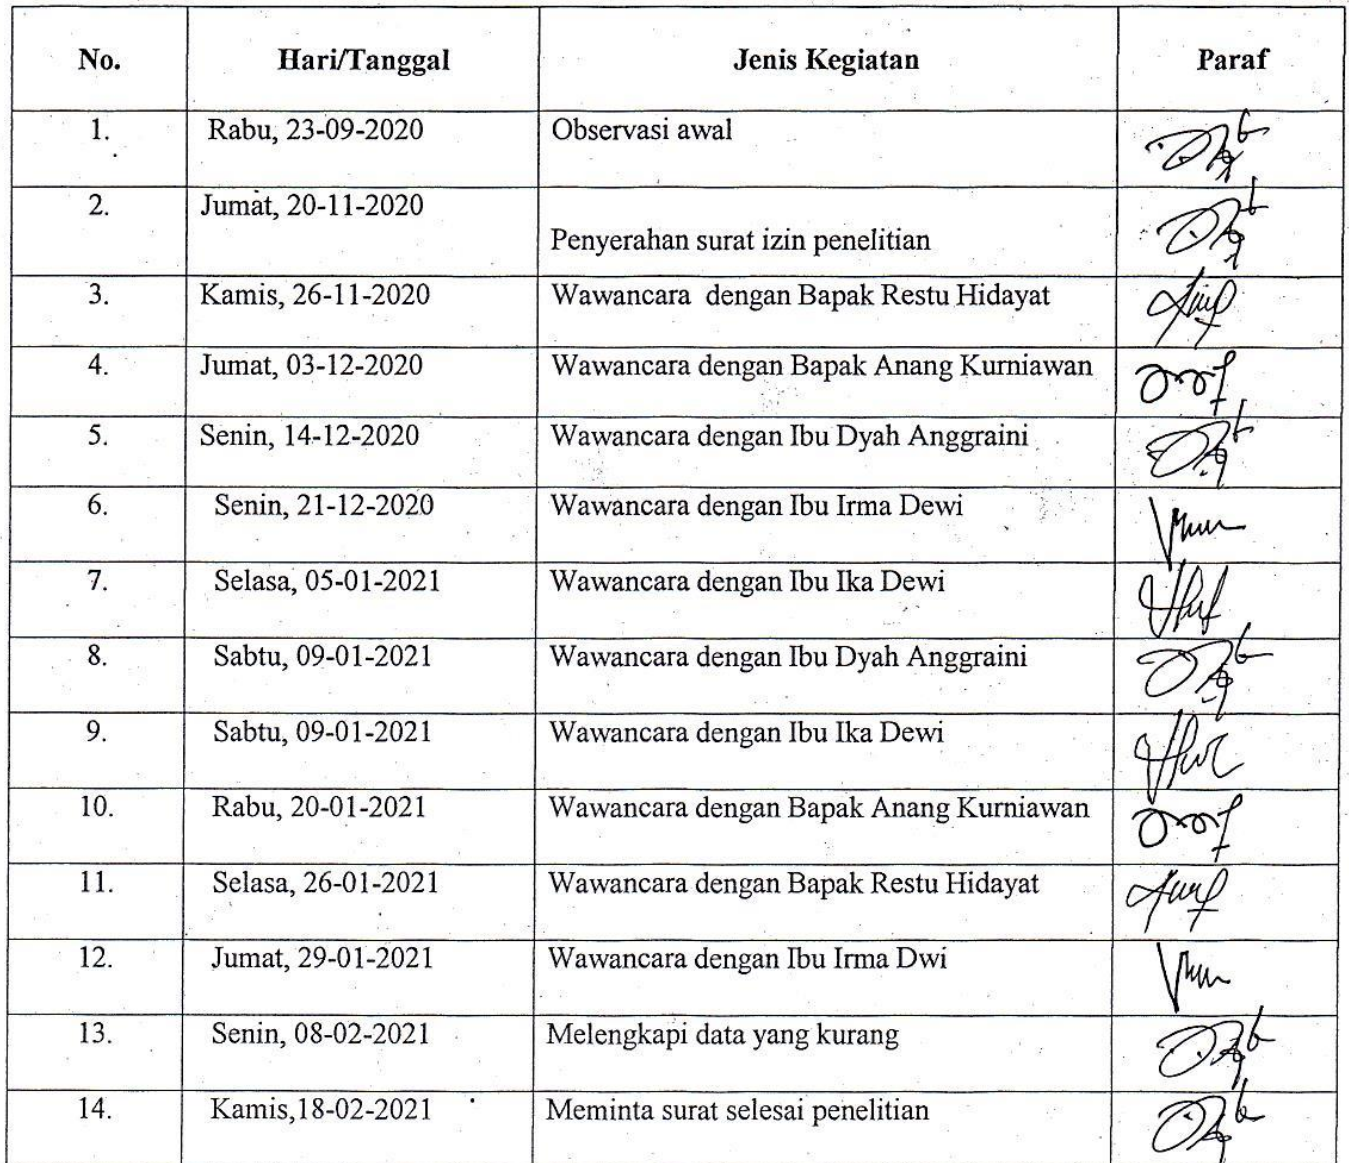 No. Hari/Tanggal Jenis Kegiatan Paraf
1. Rabu, 23-09-2020 Observasi awal
2. Jumat, 20-11-2020 Penyerahan surat izin penelitian
3. Kamis, 26-11-2020 Wawancara dengan Bapak Restu Hidayat
4. Jumat, 03-12-2020 Wawancara dengan Bapak Anang Kurniawan
5. Senin, 14-12-2020 Wawancara dengan Ibu Dyah Anggraini
6. Senin, 21-12-2020 Wawancara dengan Ibu Irma Dewi
7. Selasa, 05-01-2021 Wawancara dengan Ibu Ika Dewi
8. Sabtu, 09-01-2021 Wawancara dengan Ibu Dyah Anggraini
9. Sabtu, 09-01-2021 Wawancara dengan Ibu Ika Dewi
10. Rabu, 20-01-2021 Wawancara dengan Bapak Anang Kurniawan
11. Selasa, 26-01-2021 Wawancara dengan Bapak Restu Hidayat
12. Jumat, 29-01-2021 Wawancara dengan Ibu Irma Dwi
13. Senin, 08-02-2021 Melengkapi data yang kurang
14. Kamis,18-02-2021 Meminta surat selesai penelitian